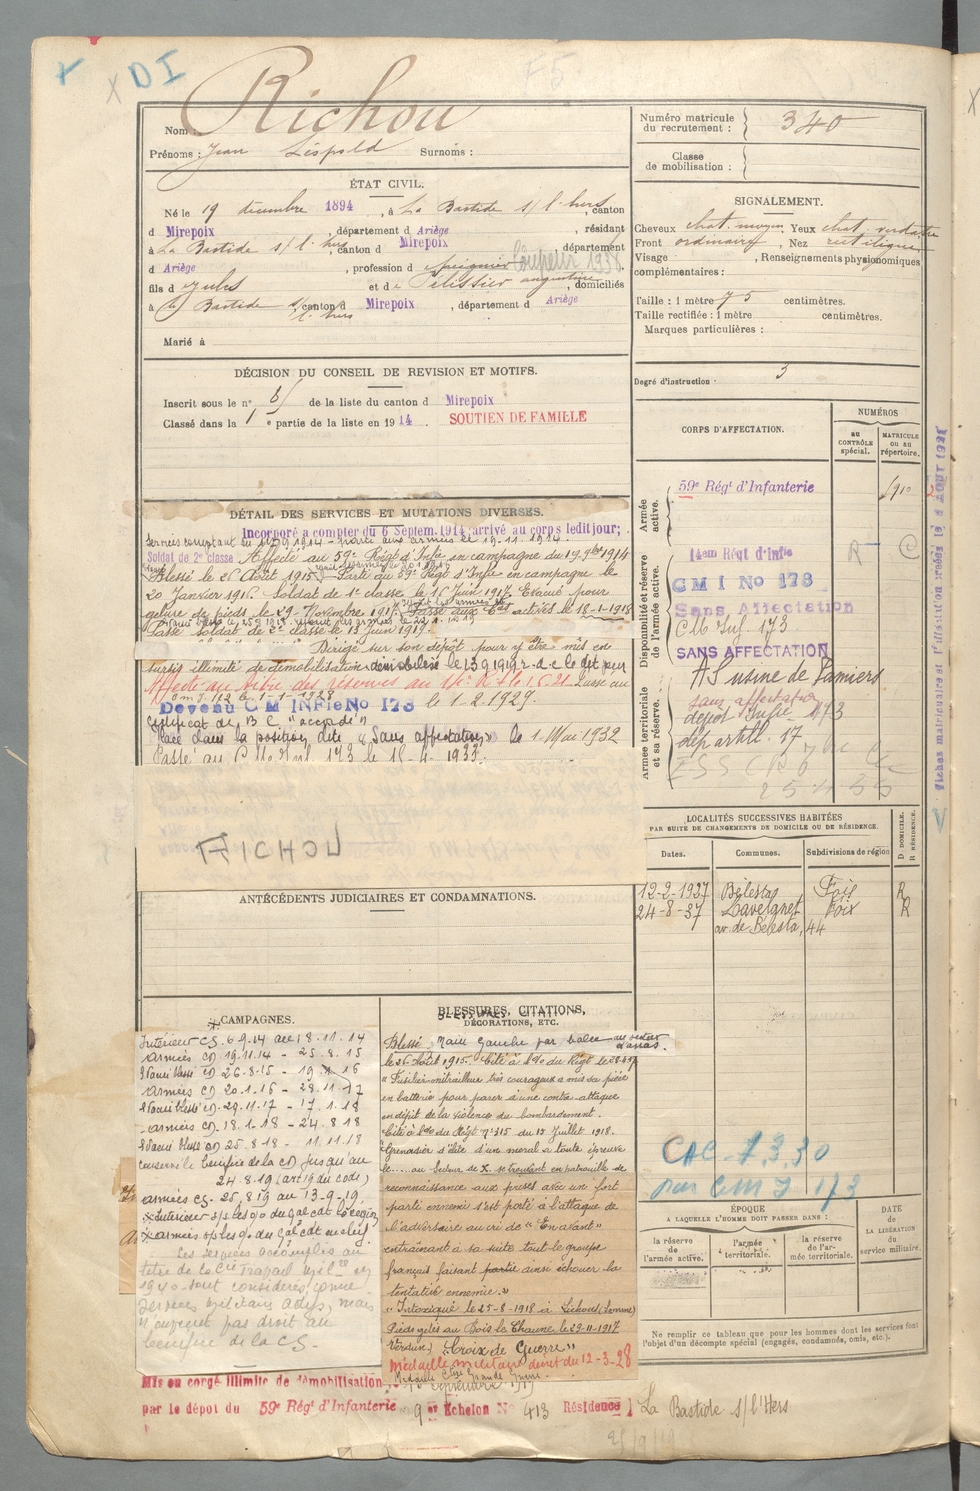 X DI
Nom : Richou
Prénoms : Jean Léopold Surnoms :
ÉTAT CIVIL.
Né le 19 décembre 1894, à La Bastide s/ l'hers, canton
d Mirepoix, département d Ariège, résidant
à La Bastide s/ l'hers, canton d Mirepoix, département
d Ariège, profession d peignier Coupeur 1938
fils d Jules et de Pelissier augustine, domiciliés
à La Bastide s/ l'hers canton d Mirepoix, département d Ariège
Marié à
DÉCISION DU CONSEIL DE REVISION ET MOTIFS.
Inscrit sous le n° 6 de la liste du canton d Mirepoix
Classé dans la 1e partie de la liste en 1914. SOUTIEN DE FAMILLE
DÉTAIL DES SERVICES ET MUTATIONS DIVERSES.
Incorporé à compter du 6 Septem. 1914, arrivé au corps ledit jour;
parti aux armées le 19.11.1914.
Soldat de 2e Classe Affecté au 59e Régt d'Infie en campagne du 19 9bre 1914
Blessé le 26 Août 1915. Parti au 59e Régt d'Infie en campagne le
20 Janvier 1916. Soldat de 1e classe le 16 Juin 1917. Evacué pour
gelure de pieds le 29 Novembre 1917. Passé aux actives le 18-1-1918
Passé soldat de 2e classe le 13 Juin 1919.
Dirigé sur son dépôt pour y être mis en
sursis illimité de démobilisation
Affecté au titre des réserves au 14e R.I. le 1.6.21 Passé au
le 1-1-1928
Devenu CM INFie No 173 le 1.2.1929.
Certificat de B C "accordé"
Placé dans la position dite "Sans affectation" le 1 Mai 1932
Passé au C Mo Inf. 173 le 15-4-1933.
RICHOU
ANTÉCÉDENTS JUDICIAIRES ET CONDAMNATIONS.
CAMPAGNES.
Intérieur CS. 6.9.14 au 18.11.14
Armées CD 19.11.14 - 25.8.15
CD 26.8.15 - 19.1.16
Armées CD 20.1.16 - 28.11.17
CD 29.11.17 - 17.1.18
Armées CD 18.1.18 - 24.8.18
CD 25.8.18 - 11.11.18
conserve le bénéfice de la CD jusqu'au
24.8.19 (art 19 du code)
armées CS. 25.8.19 au 13-9-19
Les services accomplis au
titre de la Cie Travail Milre en
1940 sont considérés comme
services militaires actifs, mais
n'ouvrent pas droit au
bénéfice de la CS.
BLESSURES, CITATIONS,
DÉCORATIONS, ETC.
Blessé Main Gauche par balle au secteur d'arras.
le 26 Août 1915. Cité à l'o/o du Régt le
"Fusilier-mitrailleur très courageux a mis sa pièce
en batterie pour parer à une contre-attaque
en dépit de la violence du bombardement.
Cité à l'o/o du Régt n° 315 du 13 Juillet 1918.
"Grenadier d'élite d'un moral à toute épreuve
le.... au Secteur de X. se trouvant en patrouille de
reconnaissance aux prises avec un fort
parti ennemi s'est porté à l'attaque de
l'adversaire au cri de "En avant"
entraînant à sa suite tout le groupe
français faisant partie ainsi échouer la
tentative ennemie."
"Intoxiqué le 25-8-1918 à Lihons (Somme)
Pieds gelés au Bois le Chaume le 29-11-1917
Verdun) Croix de Guerre"
Médaille militaire décret du 12-3-28
Mis en congé illimité de démobilisation le Septembre 1919
par le dépôt du 59e Régt d'Infanterie 9e Echelon N° 413 Résidence } La Bastide s/ l'Hers
25/9/19
Numéro matricule du recrutement : } 340
Classe de mobilisation : }
SIGNALEMENT.
Cheveux chat. moyen Yeux chat. verdâtre
Front ordinaire, Nez rectiligne
Visage , Renseignements physionomiques
complémentaires :
Taille : 1 mètre 75 centimètres.
Taille rectifiée : 1 mètre centimètres.
Marques particulières :
Degré d'instruction : 3
CORPS D'AFFECTATION.
NUMÉROS
au CONTRÔLE spécial.
MATRICULE ou au répertoire.
Armée active.
59e Régt d'Infanterie
Disponibilité et réserve de l'armée active.
14em Régt d'Infie
CM I No 173
Sans Affectation
C Mo Inf. 173
SANS AFFECTATION
Armée territoriale et sa réserve.
AS usine de Pamiers
sans affectation
dépôt Infie 173
dép artill. 17
LOCALITÉS SUCCESSIVES HABITÉES
PAR SUITE DE CHANGEMENTS DE DOMICILE OU DE RÉSIDENCE.
Dates. Communes. Subdivisions de région D. DOMICILE. R. RÉSIDENCE.
12-2-1927 Bélesta Foix R
24-8-37 Lavelanet Foix R
av. de Bélesta, 44
CAC 7.3.30
par CM I 173
ÉPOQUE
A LAQUELLE L'HOMME DOIT PASSER DANS :
la réserve de l'armée active.
l'armée territoriale.
la réserve de l'armée territoriale.
DATE de LA LIBÉRATION du service militaire.
Ne remplir ce tableau que pour les hommes dont les services font
l'objet d'un décompte spécial (engagés, condamnés, omis, etc.).